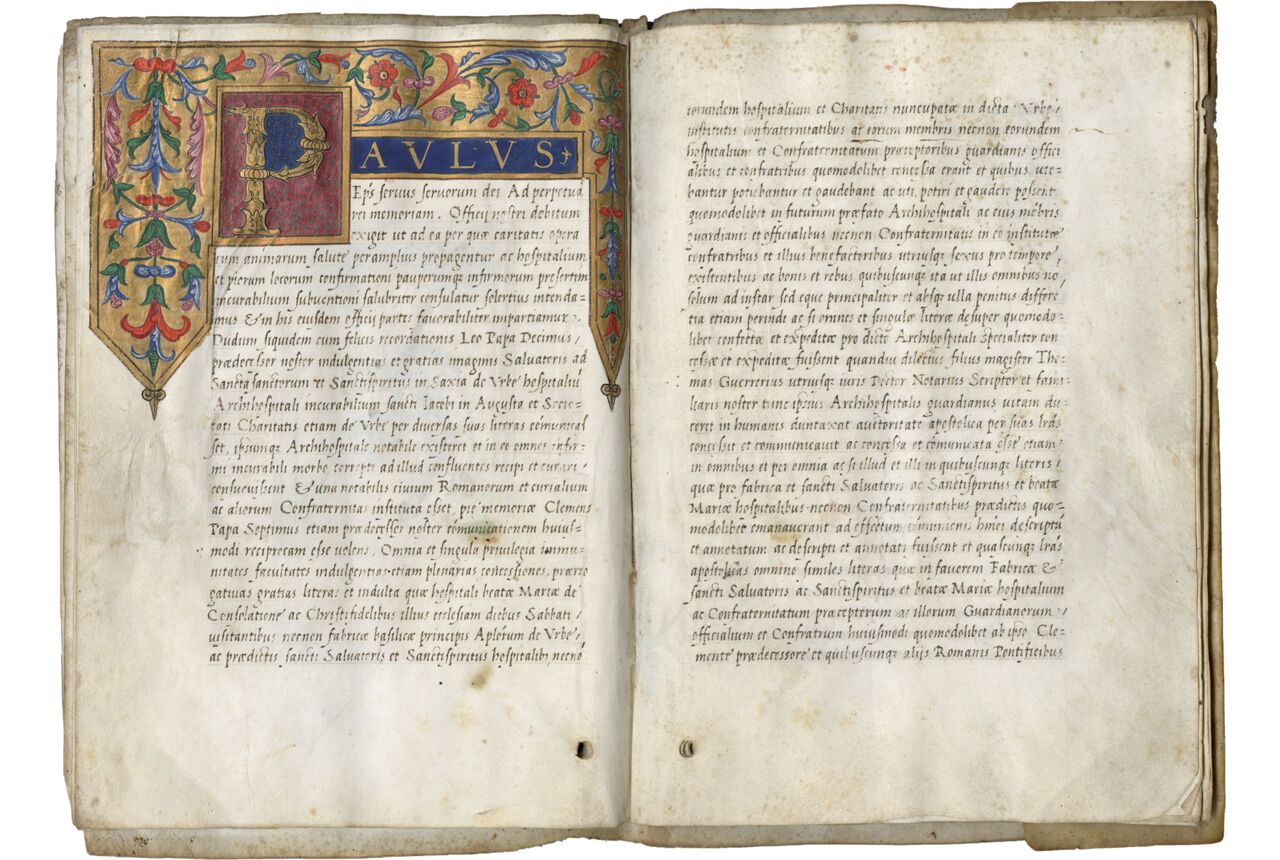 PAVLVS
Ep̄s servus servorum dei Ad perpetuā
rei memoriam. Officij nostri debitum
exigit ut ad ea per quæ caritatis opera
cum animarum salute peramplius propagentur ac hospitalium
et piorum locorum confirmationi pauperumq; infirmorum presertim
incurabilium subventioni salubriter consulatur solertius intenda=
mus & in his eiusdem officij partes favorabiliter impartiamur.
Dudum siquidem cum felicis recordationis Leo Papa Decimus,
prædecessor noster indulgentias et gratias imaginis Salvatoris ad
Sancta sanctorum et Sanctispiritus in Saxia de Urbe hospitaliū
Archihospitali incurabilium sancti Iacobi in Augusta et Socie=
tati Charitatis etiam de Urbe per diversas suas literas cōmunicas
set, ipsumq; Archihospitale notabile existeret et in eo omnes infir=
mi incurabili morbo correpti ad illud confluentes recipi et curari
consuevissent & una notabilis civium Romanorum et curialium
ac aliorum Confraternitas instituta esset, pie memoriæ Clemens
Papa Septimus etiam prædecessor noster cōmunicationem huius=
modi reciprocam esse volens, Omnia et singula privilegia immu=
nitates facultates indulgentias etiam plenarias concessiones, prærro
gativas gratias literas et indulta quæ hospitali beatæ Mariæ de
Consolatione ac Christifidelibus illius ecclesiam diebus Sabbati
visitantibus necnon fabricæ basilicæ principis Aplorum de Urbe,
ac prædictis sancti Salvatoris et Sanctispiritus hospitalib, necnō
eorundem hospitalium et Charitatis nuncupatæ in dicta Urbe
institutis confraternitatibus ac eorum membris necnon eorundem
hospitalium et Confraternitatum præceptoribus guardianis offici
alibus et confratribus quomodolibet concessa erant et quibus ute=
bantur potiebantur et gaudebant ac uti, potiri et gaudere possent
quomodolibet in futurum præfato Archihospitali ac eius mēbris
guardianis et officialibus necnon Confraternitatis in eo institutæ
confratribus et illius benefactoribus utriusq; sexus pro tempore
existentibus ac bonis et rebus quibuscunq; ita ut illis omnibus no
solum ad instar sed eque principaliter et absq; ulla penitus differē
tia etiam perinde ac si omnes et singulæ literæ desuper quomodo=
libet confectæ et expeditæ pro dicto Archihospitali Specialiter con
cessæ et expeditæ fuissent quandiu dilectus filius magister Tho=
mas Guerrerius utriusq; iuris Doctor Notarius Scriptor et fami=
liaris noster tunc ipsius Archihospitalis guardianus vitam du=
ceret in humanis duntaxat auctoritate apostolica per suas lrās
concessit et communicavit ac concessa et cōmunicata esse etiam
in omnibus et per omnia ac si illud et illi in quibuscunq; literis
quæ pro fabrica et sancti Salvatoris ac Sanctispiritus et beatæ
Mariæ hospitalibus necnon Confraternitatibus prædictis quo=
modolibet emanaverant ad effectum cōmunionis hmōi descriptū
et annotatum ac descripti et annotati fuissent et quascunq; lrās
apostolicas omnino similes literas quæ in favorem Fabricæ &
sancti Salvatoris ac Sanctispiritus et beatæ Mariæ hospitalium
ac Confraternitatum præceptorum ac illorum Guardianorum
officialium et Confratrum huiusmodi quomodolibet ab ipso Cle=
mente prædecessore et quibuscunq; alijs Romanis Pontificibus